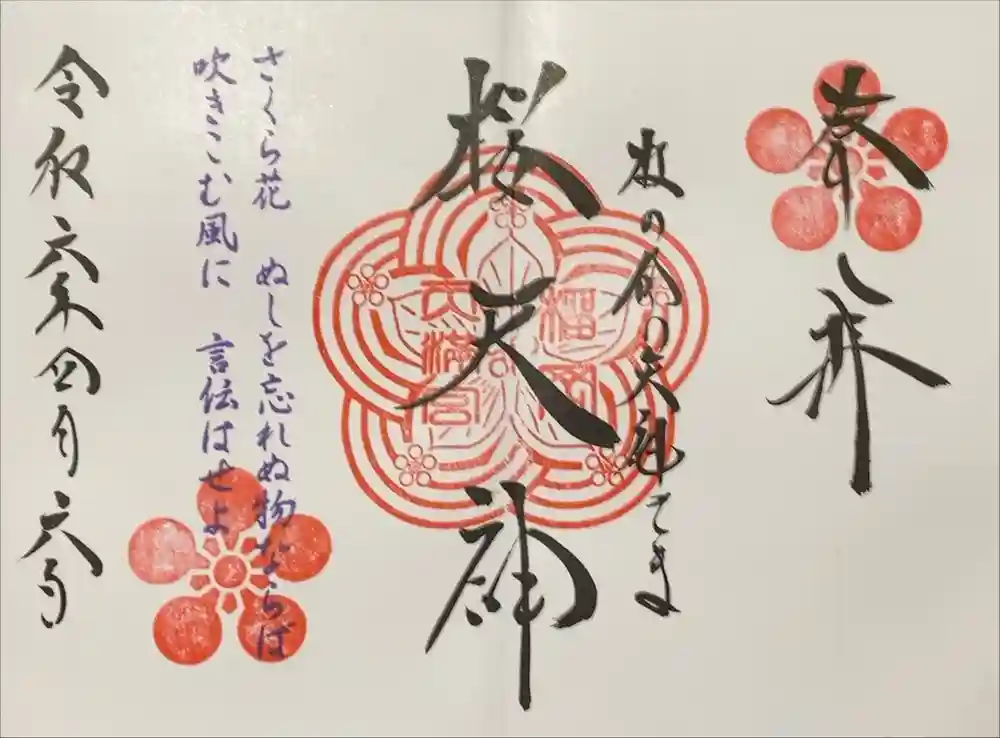 奉拝
の天神さま
桜天神
福岡
天満宮
さくら花 ぬしを忘れぬ物ならば
吹きこむ風に 言伝はせよ
令和六年四月六日